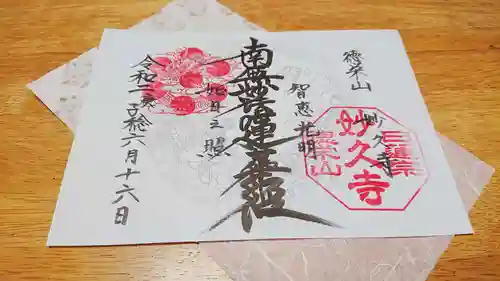 徳栄山
妙久寺
智恵光明
南無妙法蓮華経
如日之照
令和二庚子稔六月十六日
妙久寺
日蓮宗
徳栄山